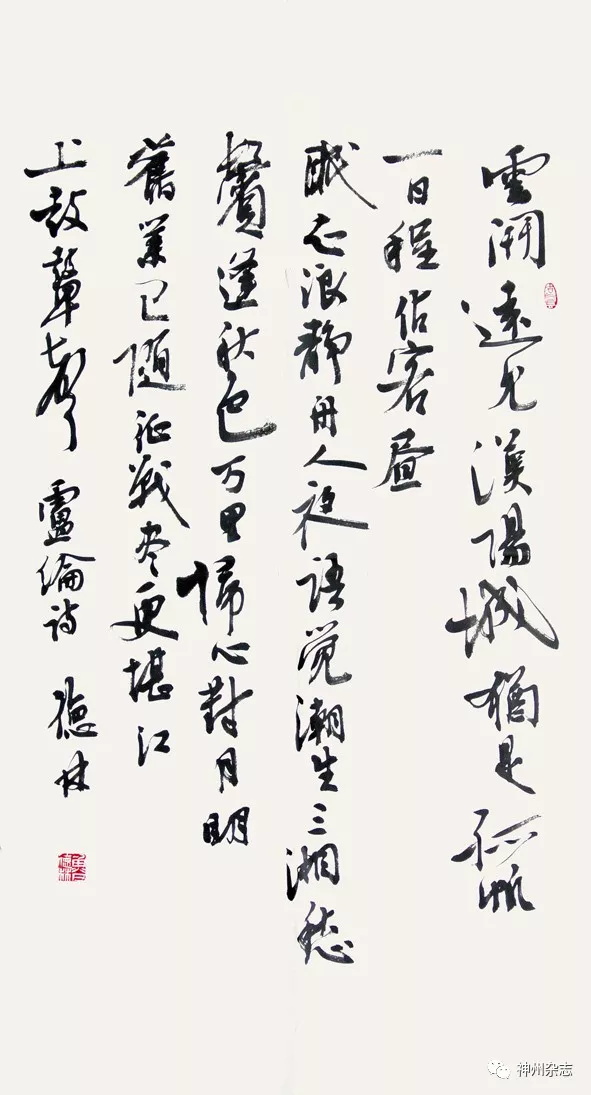 雲開遠見漢陽城猶是孤帆
一日程估客晝
眠知浪靜舟人夜語覺潮生三湘愁
鬢逢秋色万里歸心對月明
舊業已隨征戰尽更堪江
上鼓鼙聲 盧綸詩 德林
神州杂志